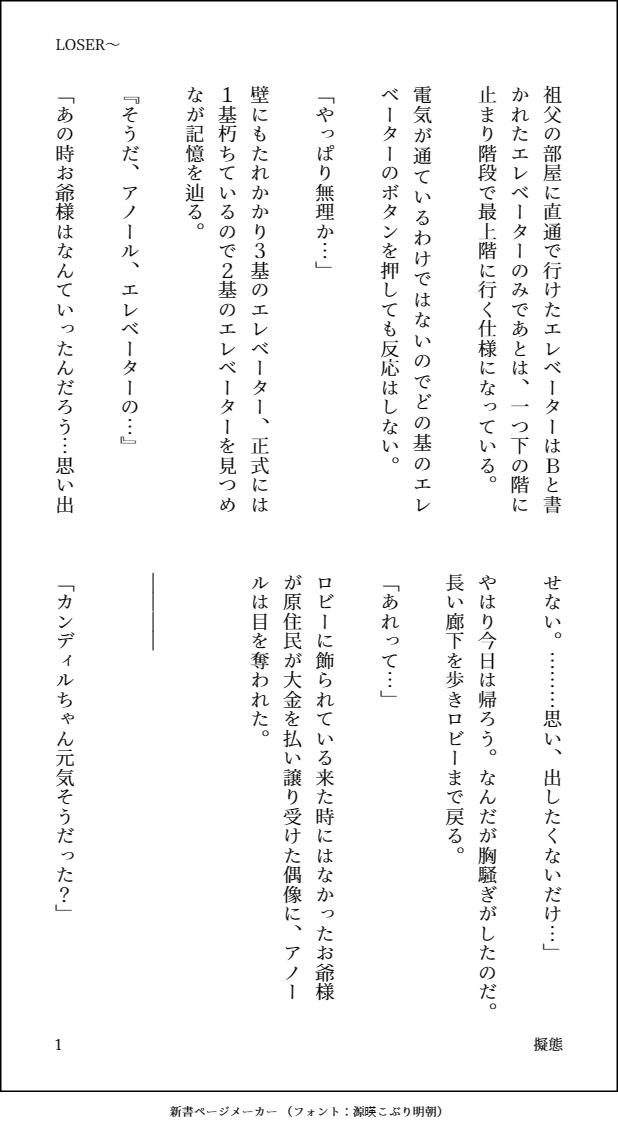 LOSER～
祖父の部屋に直通で行けたエレベーターはＢと書
かれたエレベーターのみであとは、一つ下の階に
止まり階段で最上階に行く仕様になっている。
電気が通ているわけではないのでどの基のエレ
ベーターのボタンを押しても反応はしない。
「やっぱり無理か…」
壁にもたれかかり３基のエレベーター、正式には
１基朽ちているので２基のエレベーターを見つめ
なが記憶を辿る。
『そうだ、アノール、エレベーターの…』
「あの時お爺様はなんていったんだろう…思い出
せない。………思い、出したくないだけ…」
やはり今日は帰ろう。なんだが胸騒ぎがしたのだ。
長い廊下を歩きロビーまで戻る。
「あれって…」
ロビーに飾られている来た時にはなかったお爺様
が原住民が大金を払い譲り受けた偶像に、アノー
ルは目を奪われた。
――――
「カンディルちゃん元気そうだった？」
1
擬態
新書ページメーカー （フォント：源暎こぶり明朝）